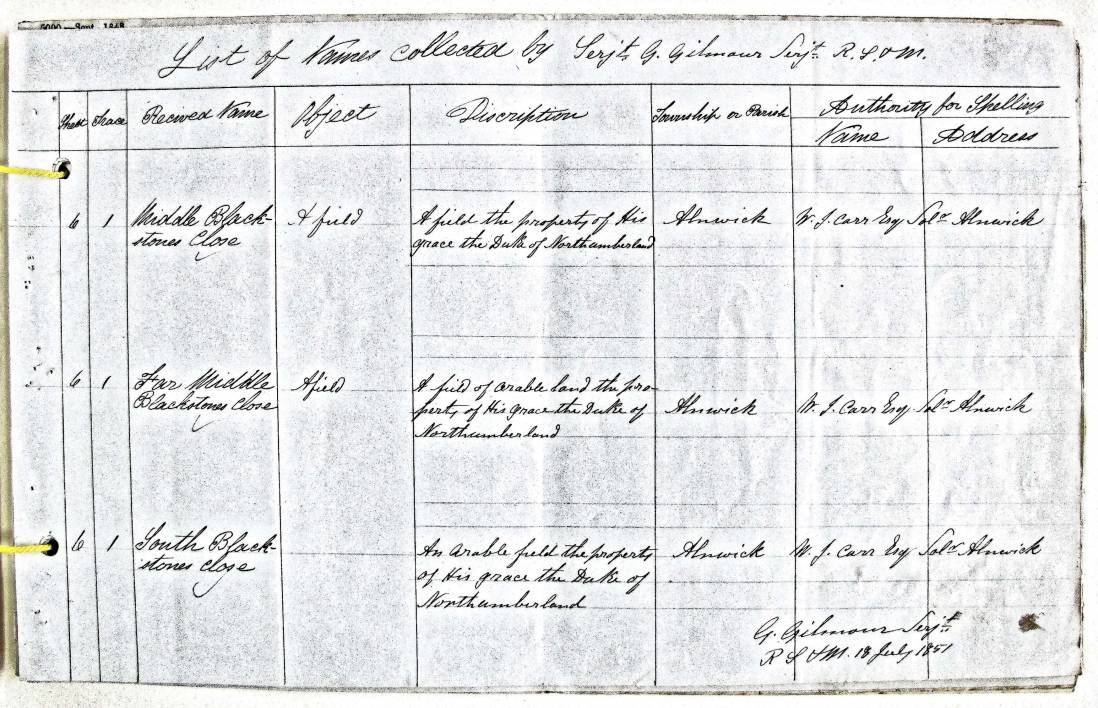 5000—Sept. 1848
List of Names collected by Serjt. G. Gilmour Serjt. R. S. & M.
Sheet Trace Recived Name Object Discription Township or Parish Authority for Spelling
Name Address
6 1 Middle Black- A field A field the property of His Alnwick W. J. Carr Esq Solr Alnwick
stones Close grace the Duke of Northumberland
6 1 Far Middle A field A field of arable land the pro-
Blackstones Close perty of His grace the Duke of Alnwick W. J. Carr Esq Solr Alnwick
Northumberland
6 1 South Black- An arable field the property Alnwick W. J. Carr Esq Solr Alnwick
stones Close of His grace the Duke of
Northumberland
G. Gilmour Serjt.
R S & M. 18 July 1851